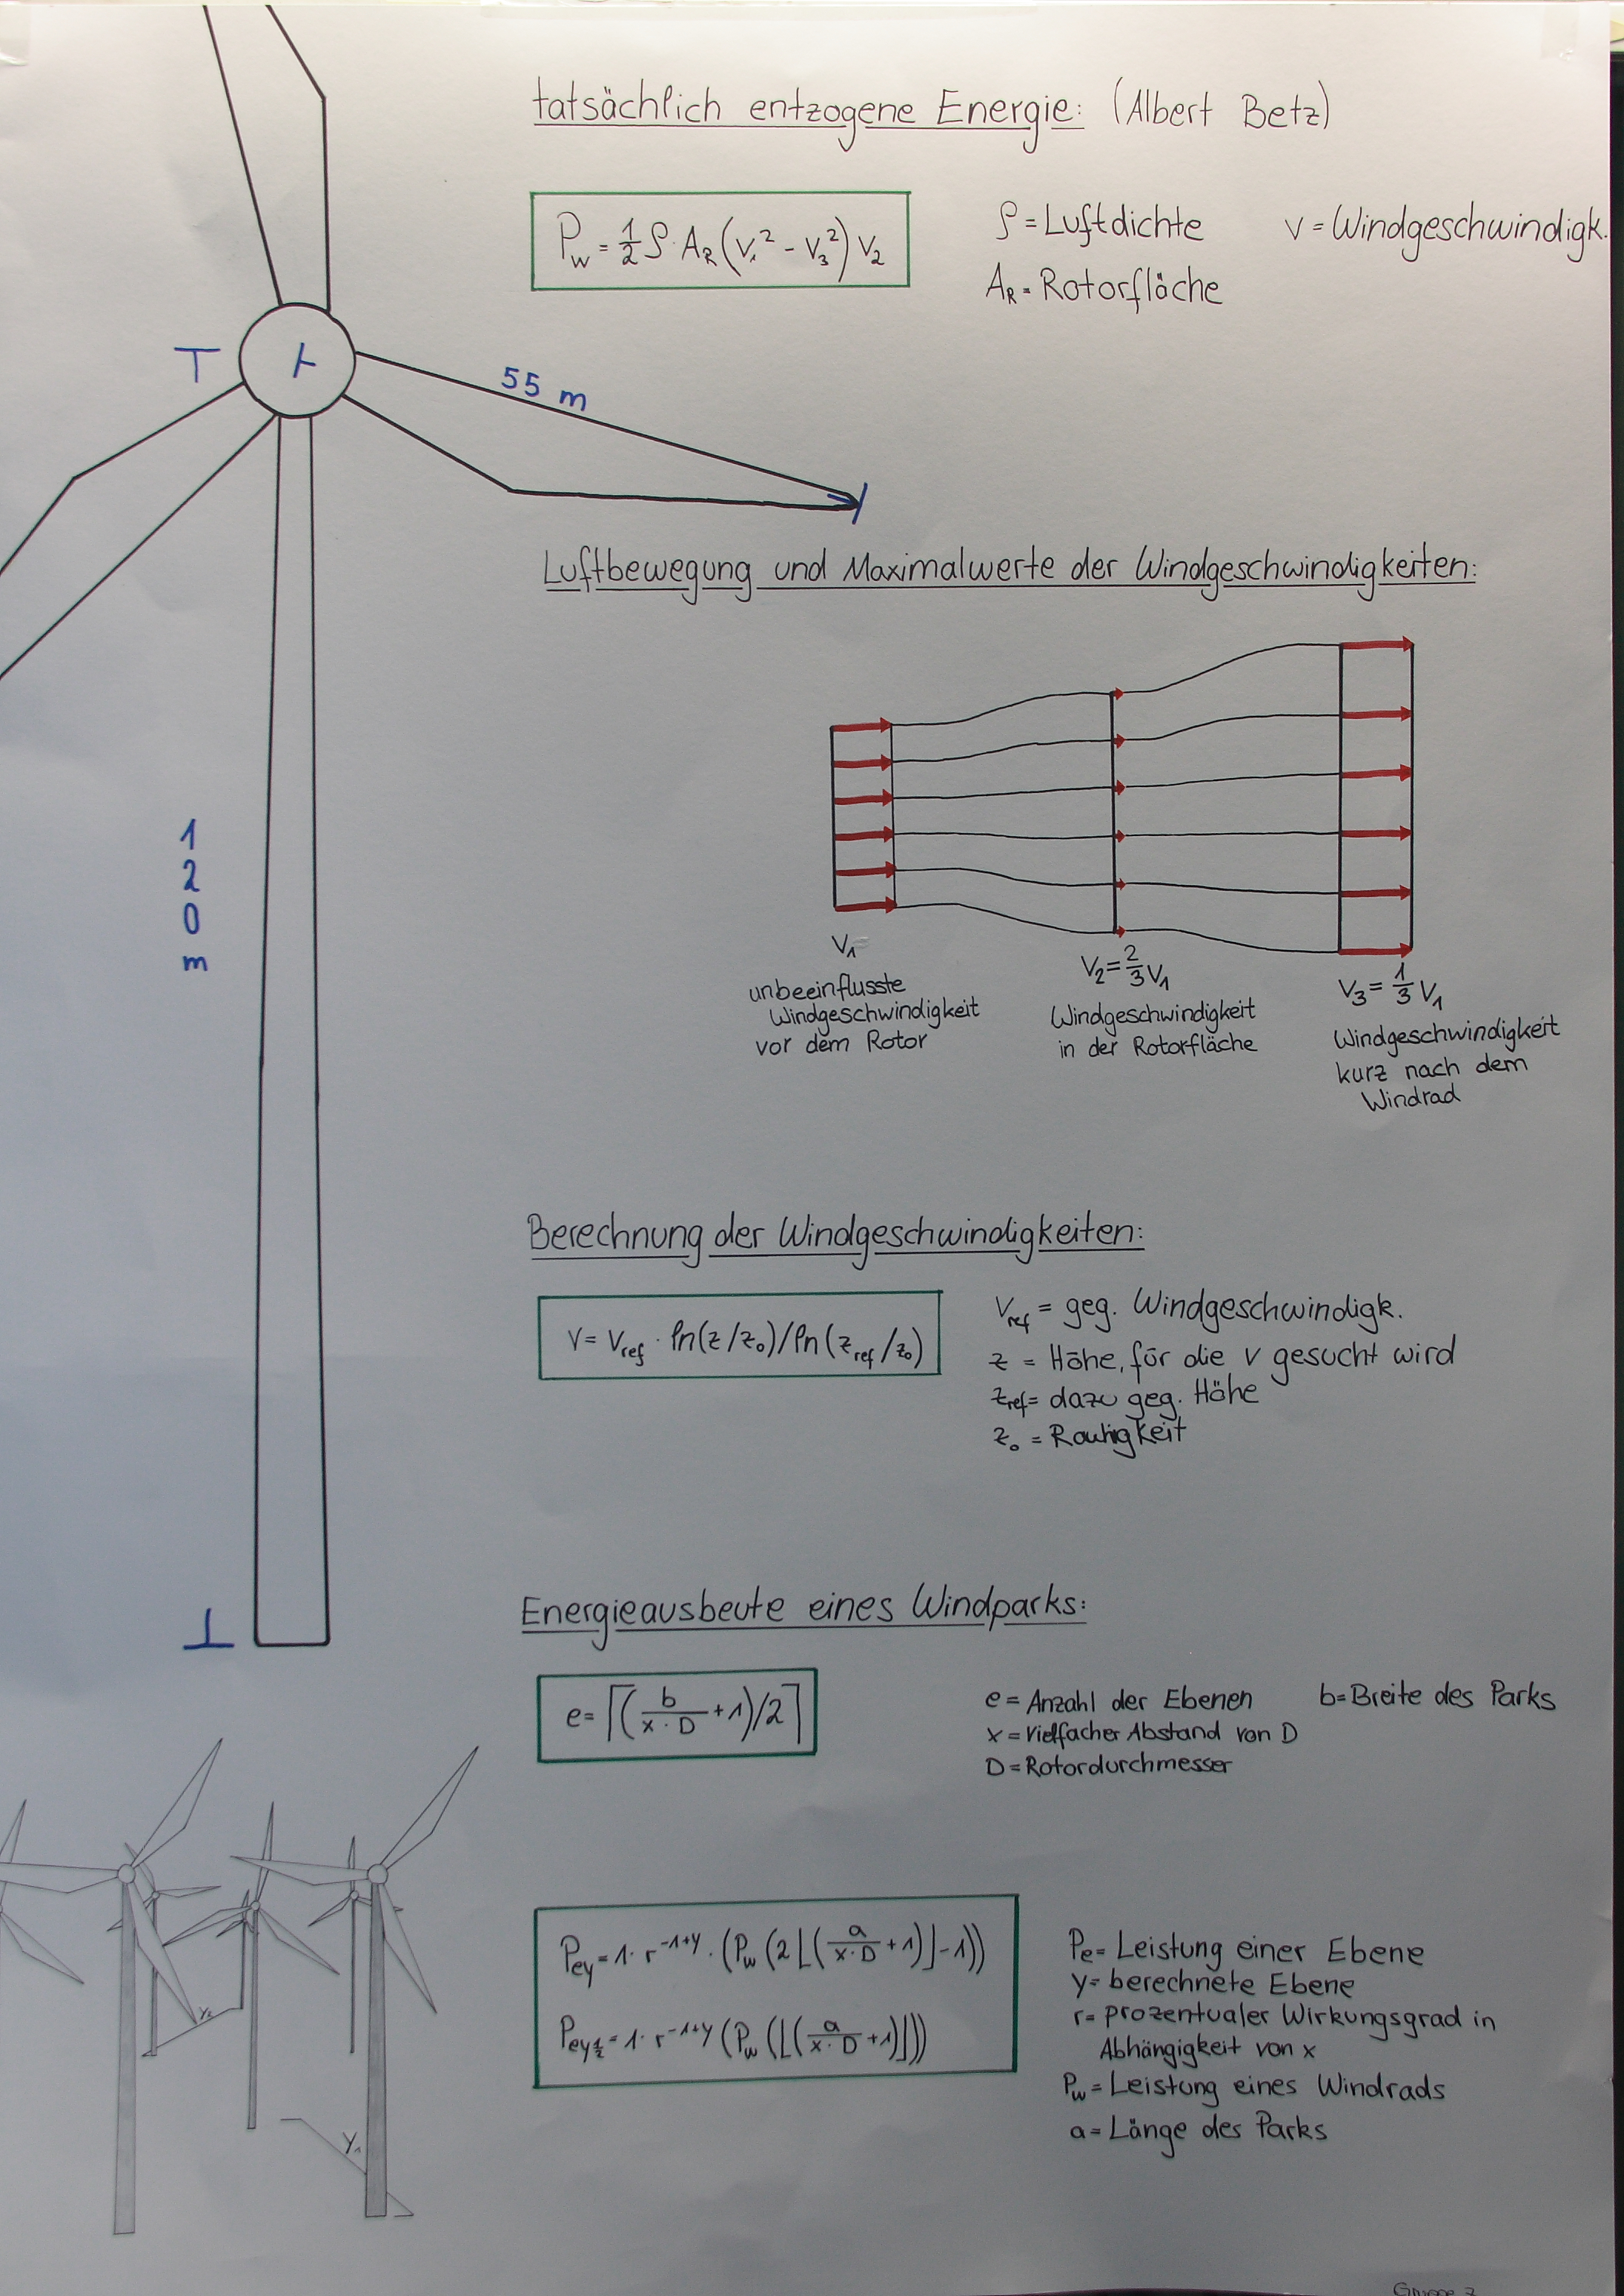 tatsächlich entzogene Energie: (Albert Betz)
P_w = 1/2 ρ · A_R (v₁² - v₃²) v₂
ρ = Luftdichte v = Windgeschwindigk.
A_R = Rotorfläche
55 m
Luftbewegung und Maximalwerte der Windgeschwindigkeiten:
120m
v₁
unbeeinflusste
Windgeschwindigkeit
vor dem Rotor
v₂ = 2/3 v₁
Windgeschwindigkeit
in der Rotorfläche
v₃ = 1/3 v₁
Windgeschwindigkeit
kurz nach dem
Windrad
Berechnung der Windgeschwindigkeiten:
v = v_ref · ln(z/z₀)/ln(z_ref/z₀)
v_ref = geg. Windgeschwindigk.
z = Höhe, für die v gesucht wird
z_ref = dazu geg. Höhe
z₀ = Rauhigkeit
Energieausbeute eines Windparks:
e = ⌈(b/(x · D) + 1)/2⌉
e = Anzahl der Ebenen b = Breite des Parks
x = vielfacher Abstand von D
D = Rotordurchmesser
P_ey = 1 · r^(-1+y) · (P_w (2⌊(a/(x · D) + 1)⌋ - 1))
P_ey½ = 1 · r^(-1+y) (P_w (⌊(a/(x · D) + 1)⌋))
P_e = Leistung einer Ebene
y = berechnete Ebene
r = prozentualer Wirkungsgrad in
Abhängigkeit von x
P_w = Leistung eines Windrads
a = Länge des Parks
y₁